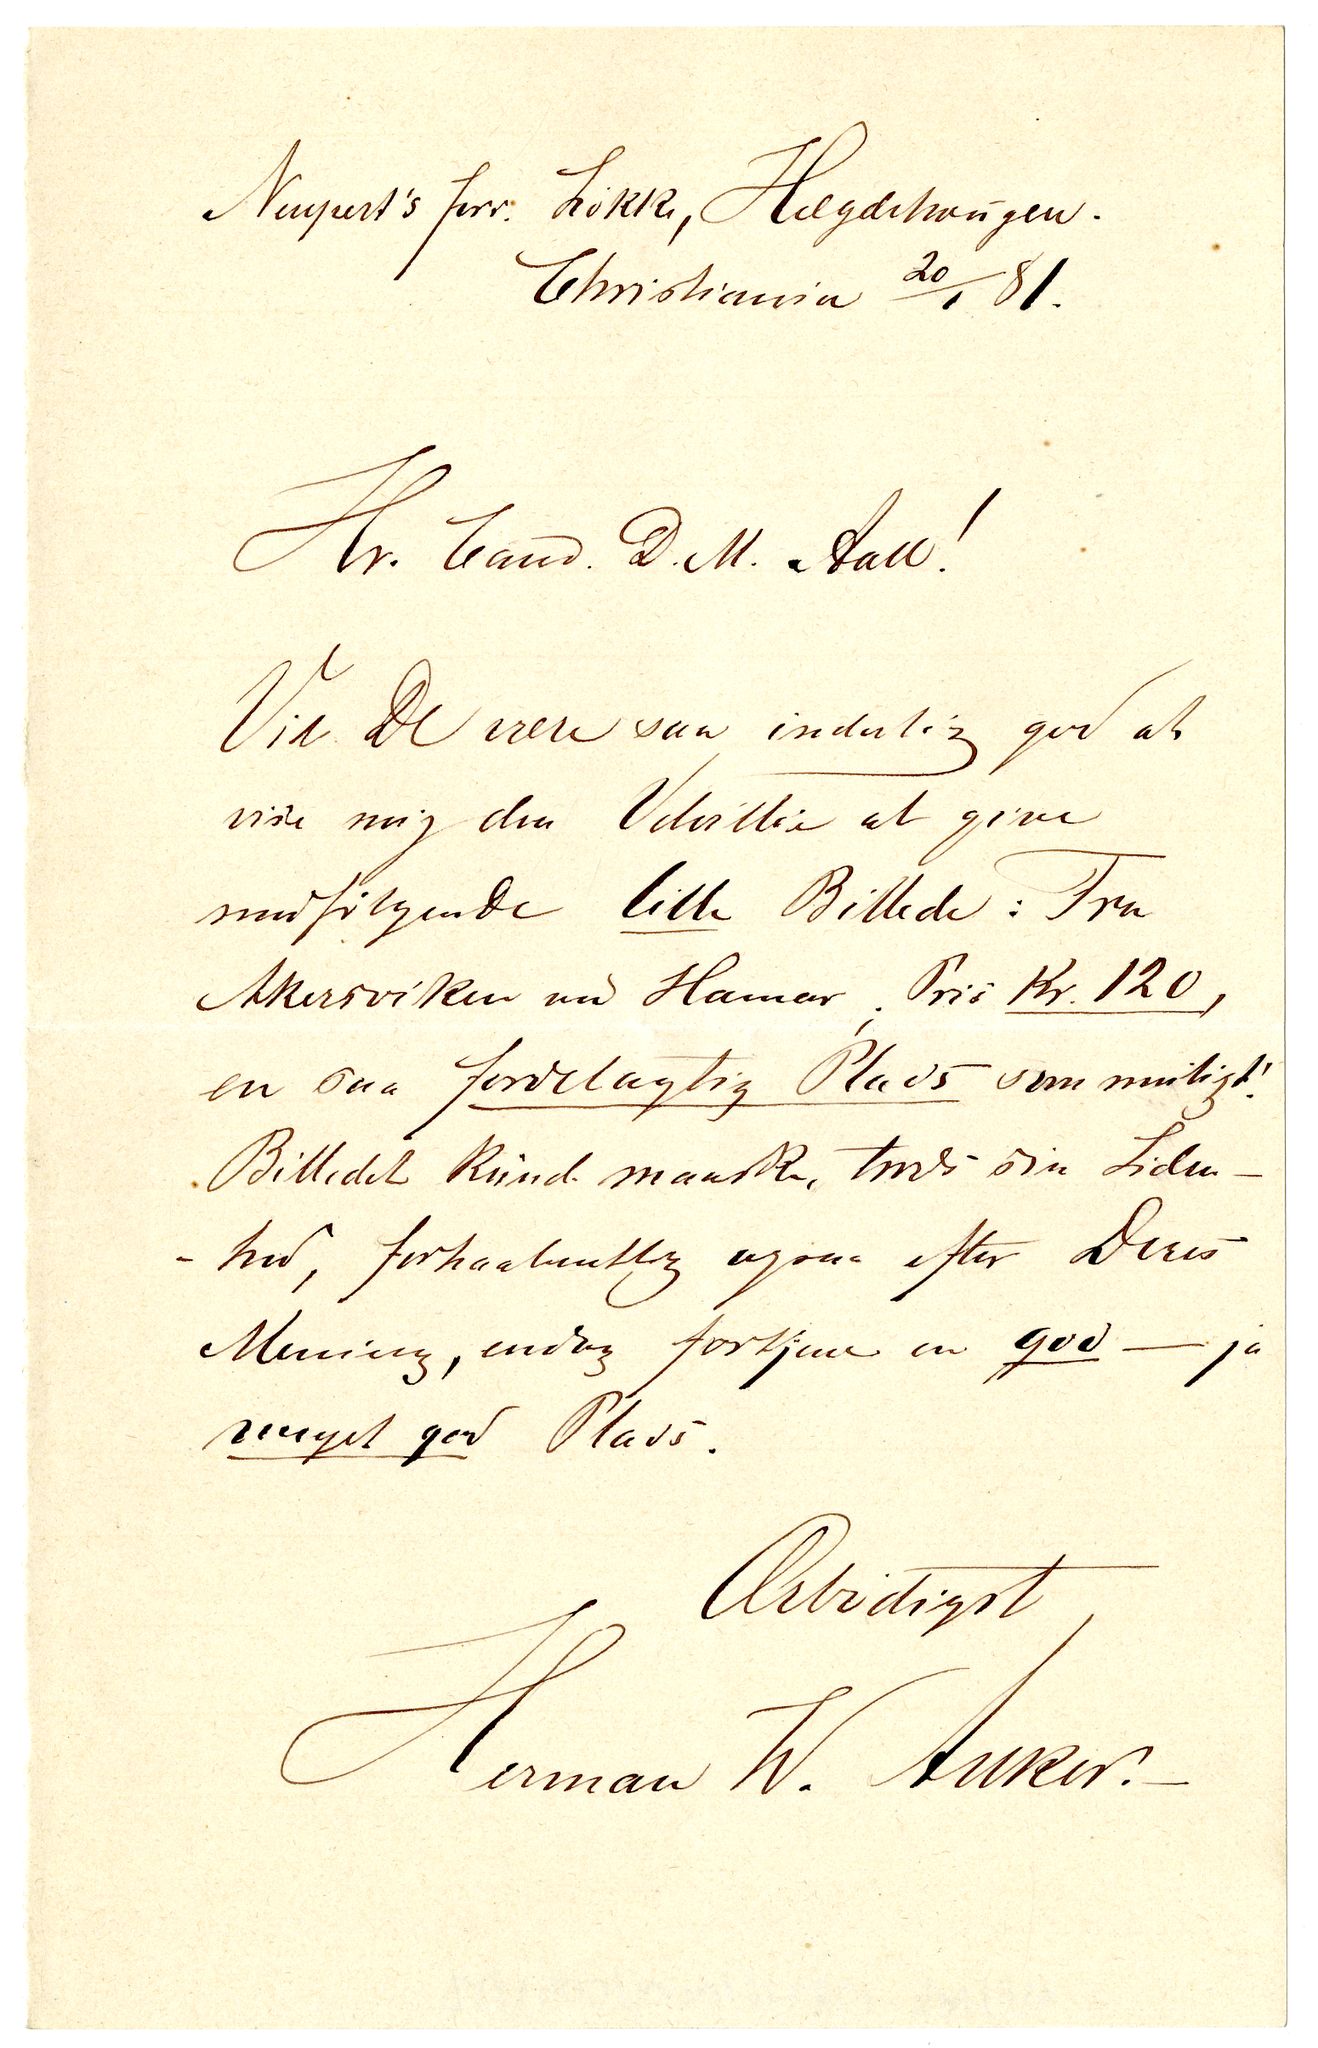 Neupert's forr. Løkke, Hægdehaugen.
Christiania 20/1 81.
Hr. Cand. D. M. Aall!
Vil De være saa inderlig god at
vise mig den Velvillie at give
medfølgende lille Billede: Fra
Akersviken ved Hamar, Pris Kr. 120,
en saa fordelagtig Plads som muligt!
Billedet kunde maaske, trods sin Liden-
-hed, forhaabentlig ogsaa efter Deres
Mening, endog fortjene en god — ja
meget god Plads.
Ærbødigst
Herman W. Anker.—